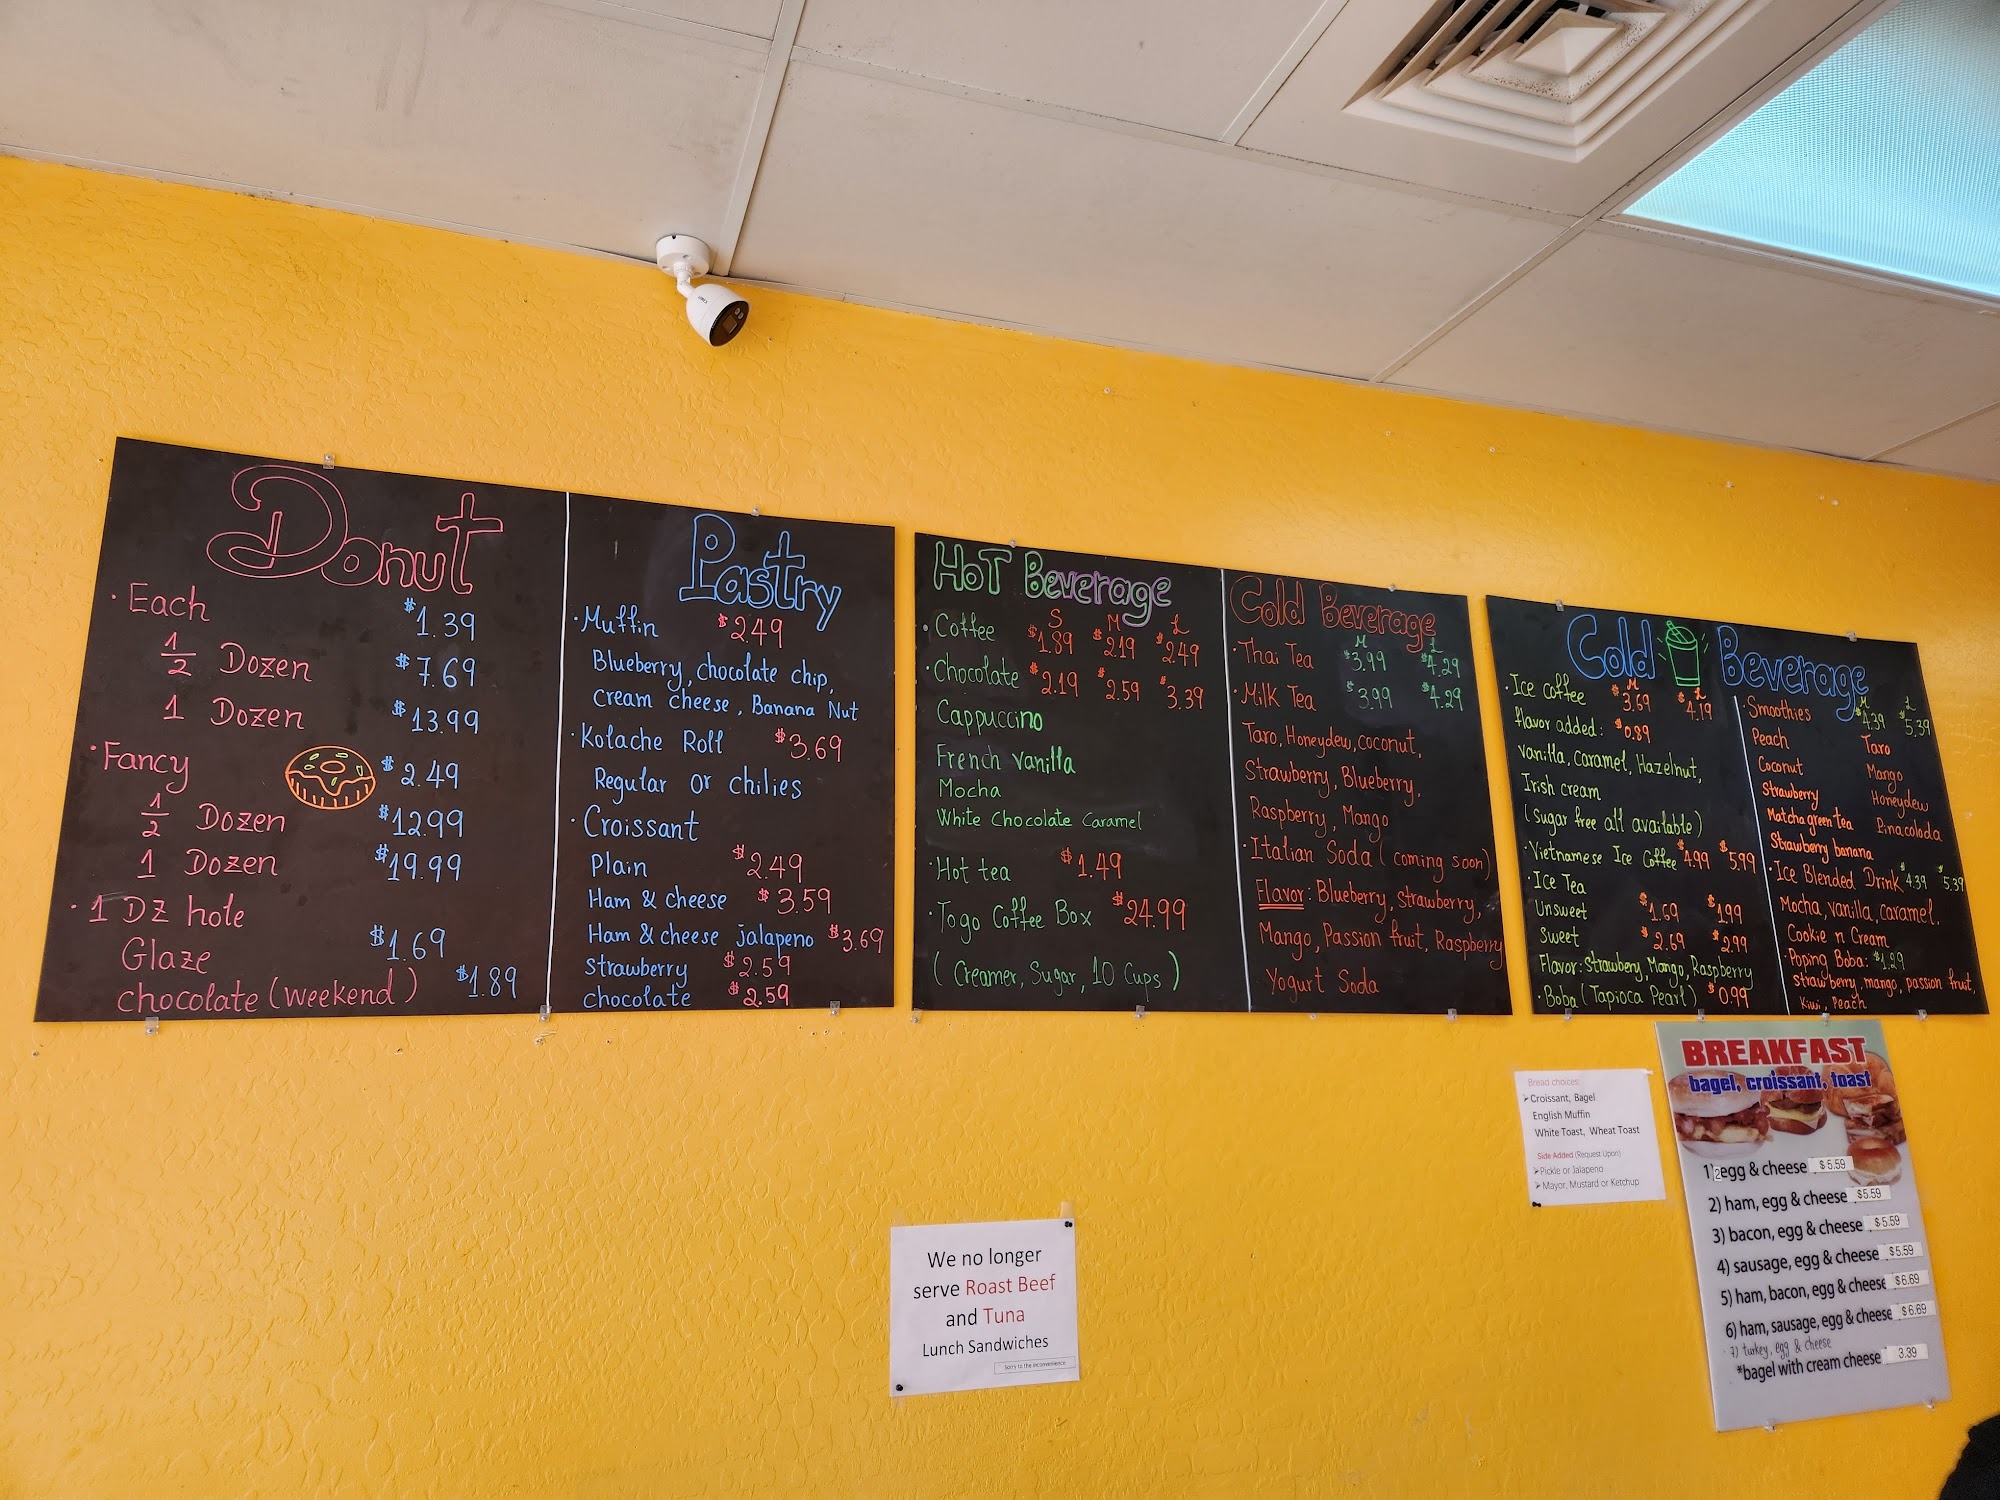 Donut
· Each $1.39
1/2 Dozen $7.69
1 Dozen $13.99
· Fancy $2.49
1/2 Dozen $12.99
1 Dozen $19.99
· 1 DZ hole
Glaze $1.69
chocolate (weekend) $1.89
Pastry
· Muffin $2.49
Blueberry, chocolate chip,
cream cheese, Banana Nut
· Kolache Roll $3.69
Regular or chilies
· Croissant
Plain $2.49
Ham & cheese $3.59
Ham & cheese jalapeno $3.69
strawberry $2.59
chocolate $2.59
HoT Beverage
S M L
· Coffee $1.89 $2.19 $2.49
· Chocolate $2.19 $2.59 $3.39
Cappuccino
French vanilla
Mocha
White Chocolate Caramel
· Hot tea $1.49
· Togo Coffee Box $24.99
( Creamer, Sugar, 10 Cups )
Cold Beverage
M L
· Thai Tea $3.99 $4.29
· Milk Tea $3.99 $4.29
Taro, Honeydew, coconut,
Strawberry, Blueberry,
Raspberry, Mango
· Italian Soda ( coming soon)
Flavor: Blueberry, Strawberry,
Mango, Passion fruit, Raspberry
Yogurt Soda
Cold Beverage
M L
· Ice coffee $3.69 $4.19
flavor added: $0.89
vanilla, caramel, Hazelnut,
Irish cream
( sugar free all available )
· Vietnamese Ice Coffee $4.99 $5.99
· Ice Tea
Unsweet $1.69 $1.99
Sweet $2.69 $2.99
Flavor: Strawbery, Mango, Raspberry
· Boba (Tapioca Pearl) $0.99
M L
· Smoothies $4.39 $5.39
Peach Taro
Coconut Mango
Strawberry Honeydew
Matcha green tea Pinacoloda
Strawberry banana
· Ice Blended Drink $4.39 $5.39
Mocha, vanilla, caramel,
Cookie n Cream
· Poping Boba: $1.29
strawberry, mango, passion fruit,
Kiwi, Peach
BREAKFAST
bagel, croissant, toast
1) 2 egg & cheese $5.59
2) ham, egg & cheese $5.59
3) bacon, egg & cheese $5.59
4) sausage, egg & cheese $5.59
5) ham, bacon, egg & cheese $6.69
6) ham, sausage, egg & cheese $6.69
7) turkey, egg & cheese
*bagel with cream cheese 3.39
Bread choices:
➢ Croissant, Bagel
English Muffin
White Toast, Wheat Toast
Side Added (Request Upon)
➢ Pickle or Jalapeno
➢ Mayor, Mustard or Ketchup
We no longer
serve Roast Beef
and Tuna
Lunch Sandwiches
Sorry to the inconvenience